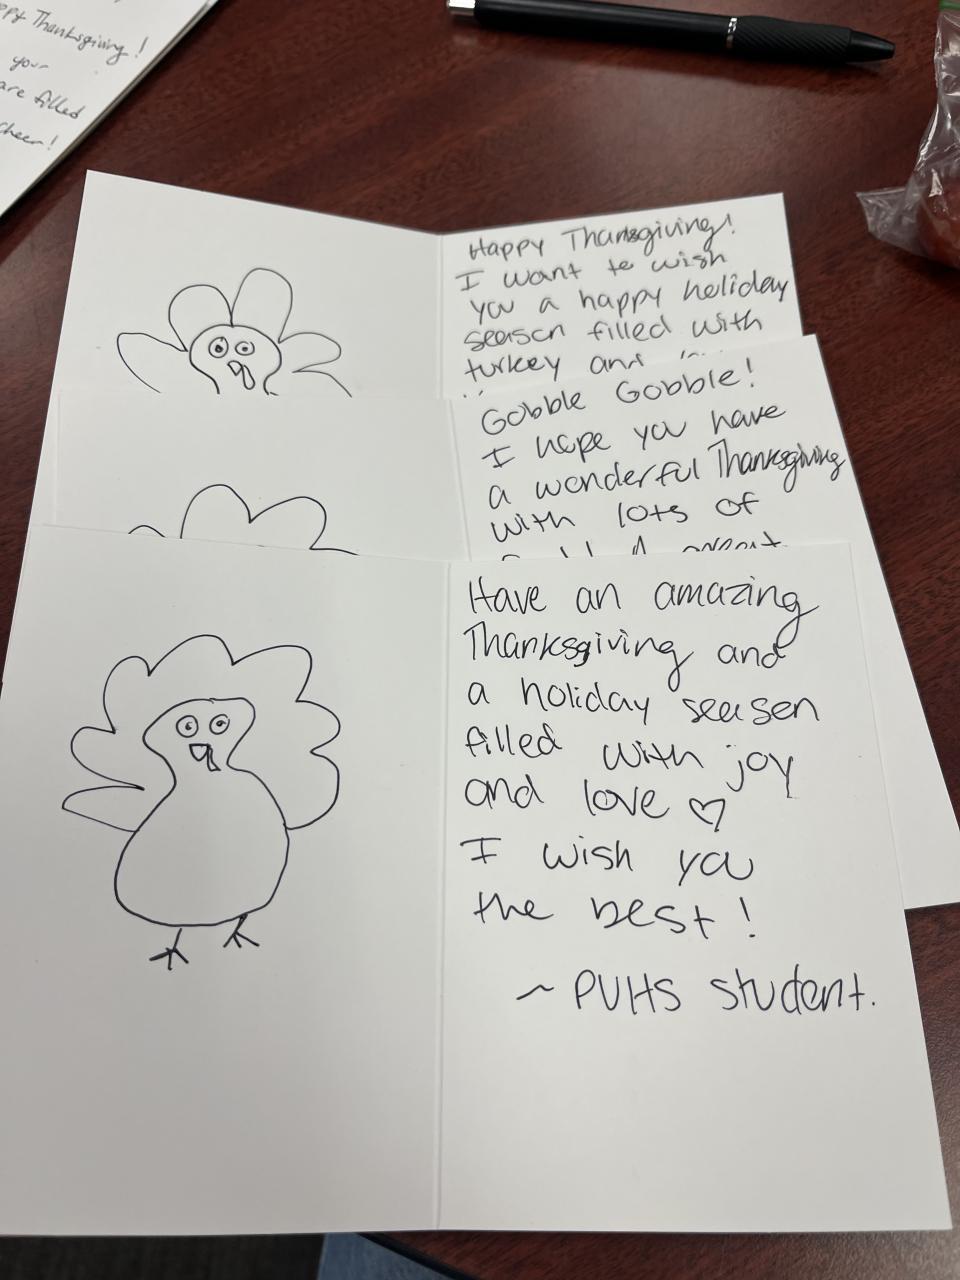 Thanksgiving!
your
are filled
cheer!
Happy Thanksgiving!
I want to wish
you a happy holiday
season filled with
turkey and
Gobble Gobble!
I hope you have
a wonderful Thanksgiving
with lots of
Have an amazing
Thanksgiving and
a holiday season
filled with joy
and love ♡
I wish you
the best!
~ PVHS student.